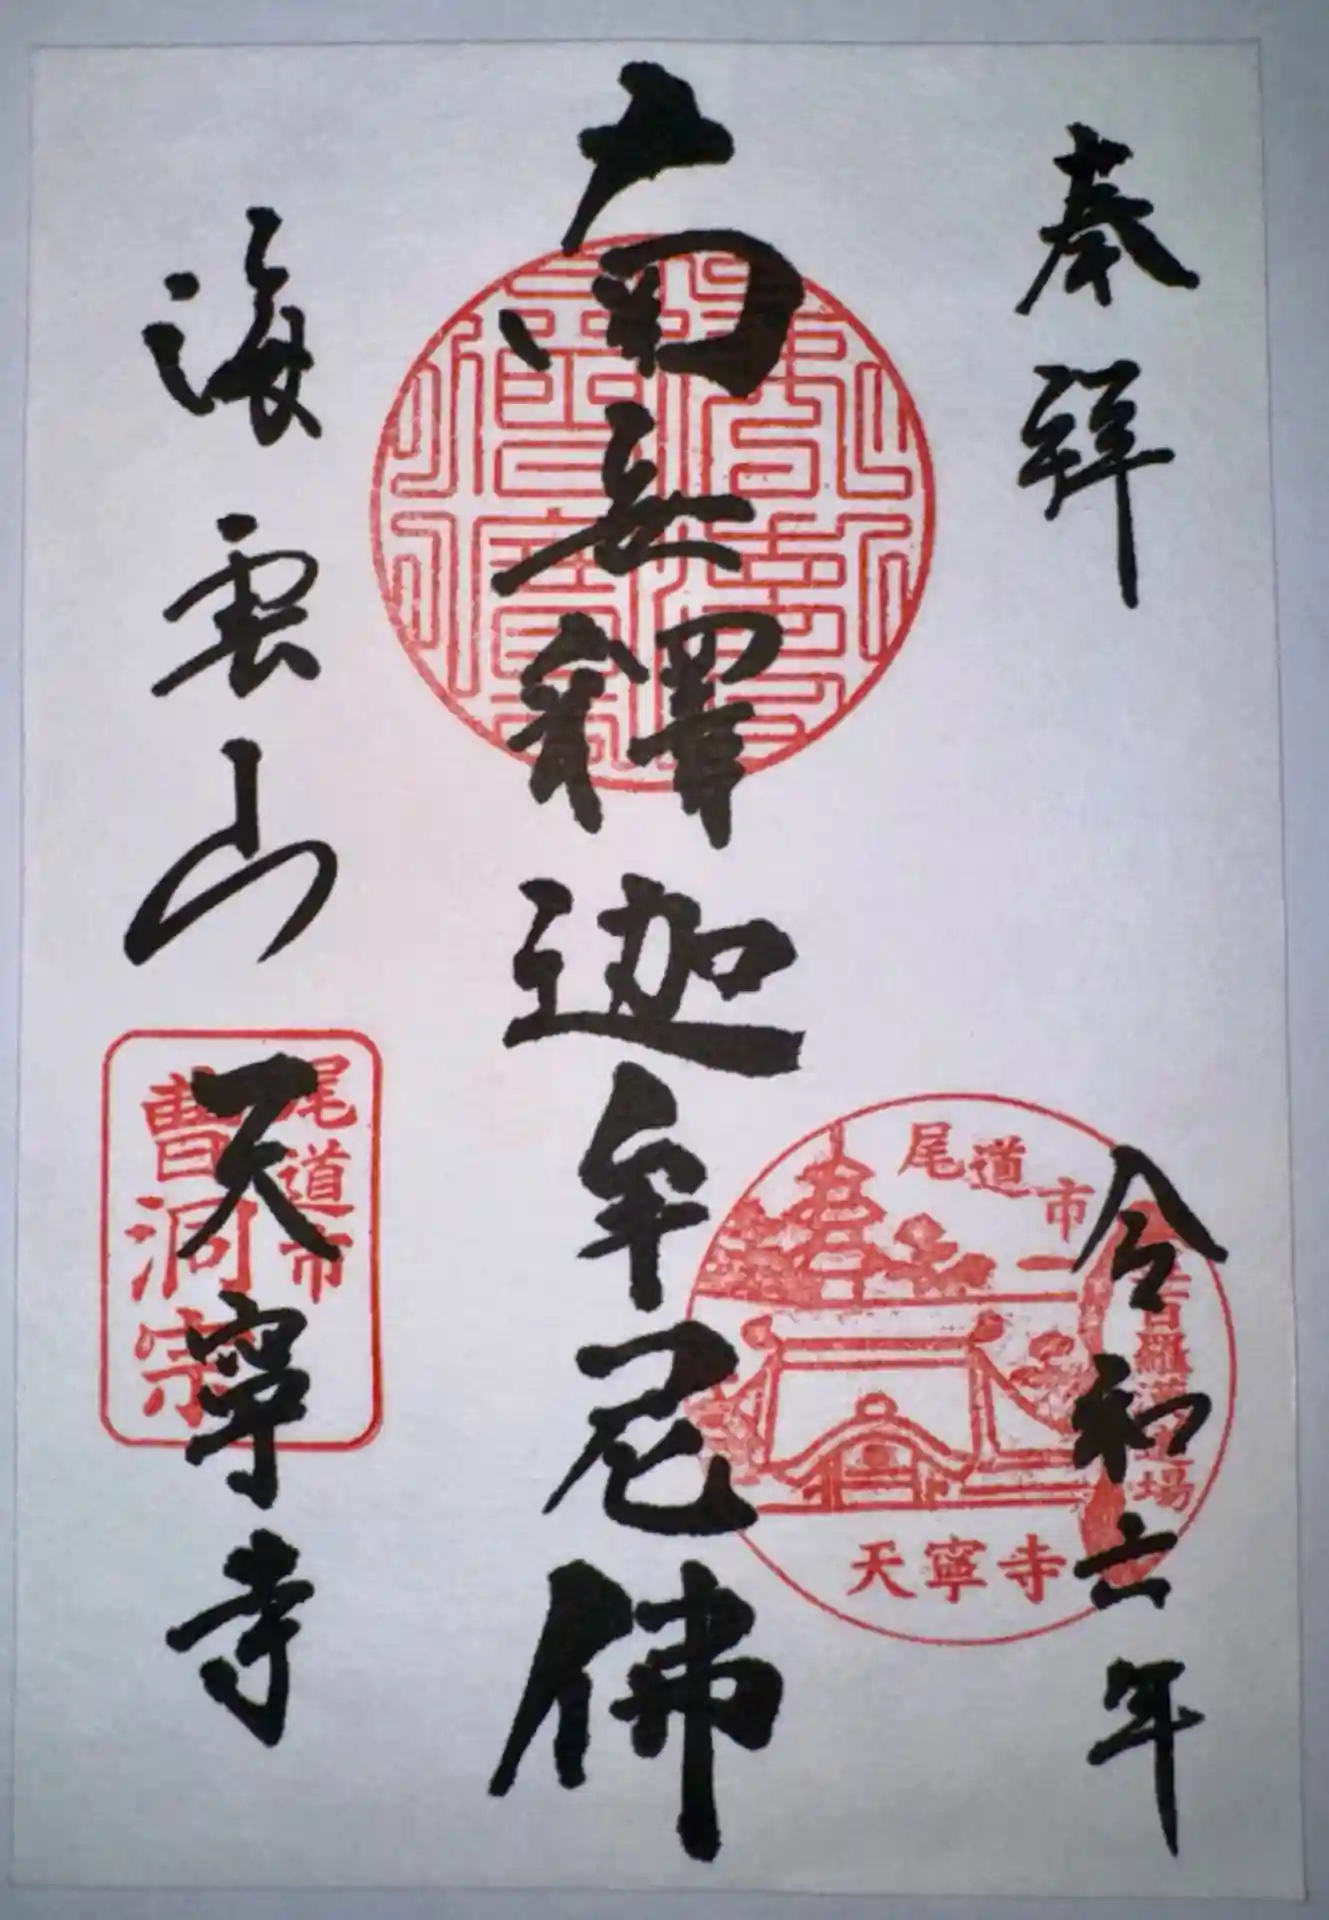 奉拝
令和六年
尾道市
五百羅漢道場
天寧寺
南無釋迦牟尼佛
海雲山
天寧寺
尾道市
曹洞宗